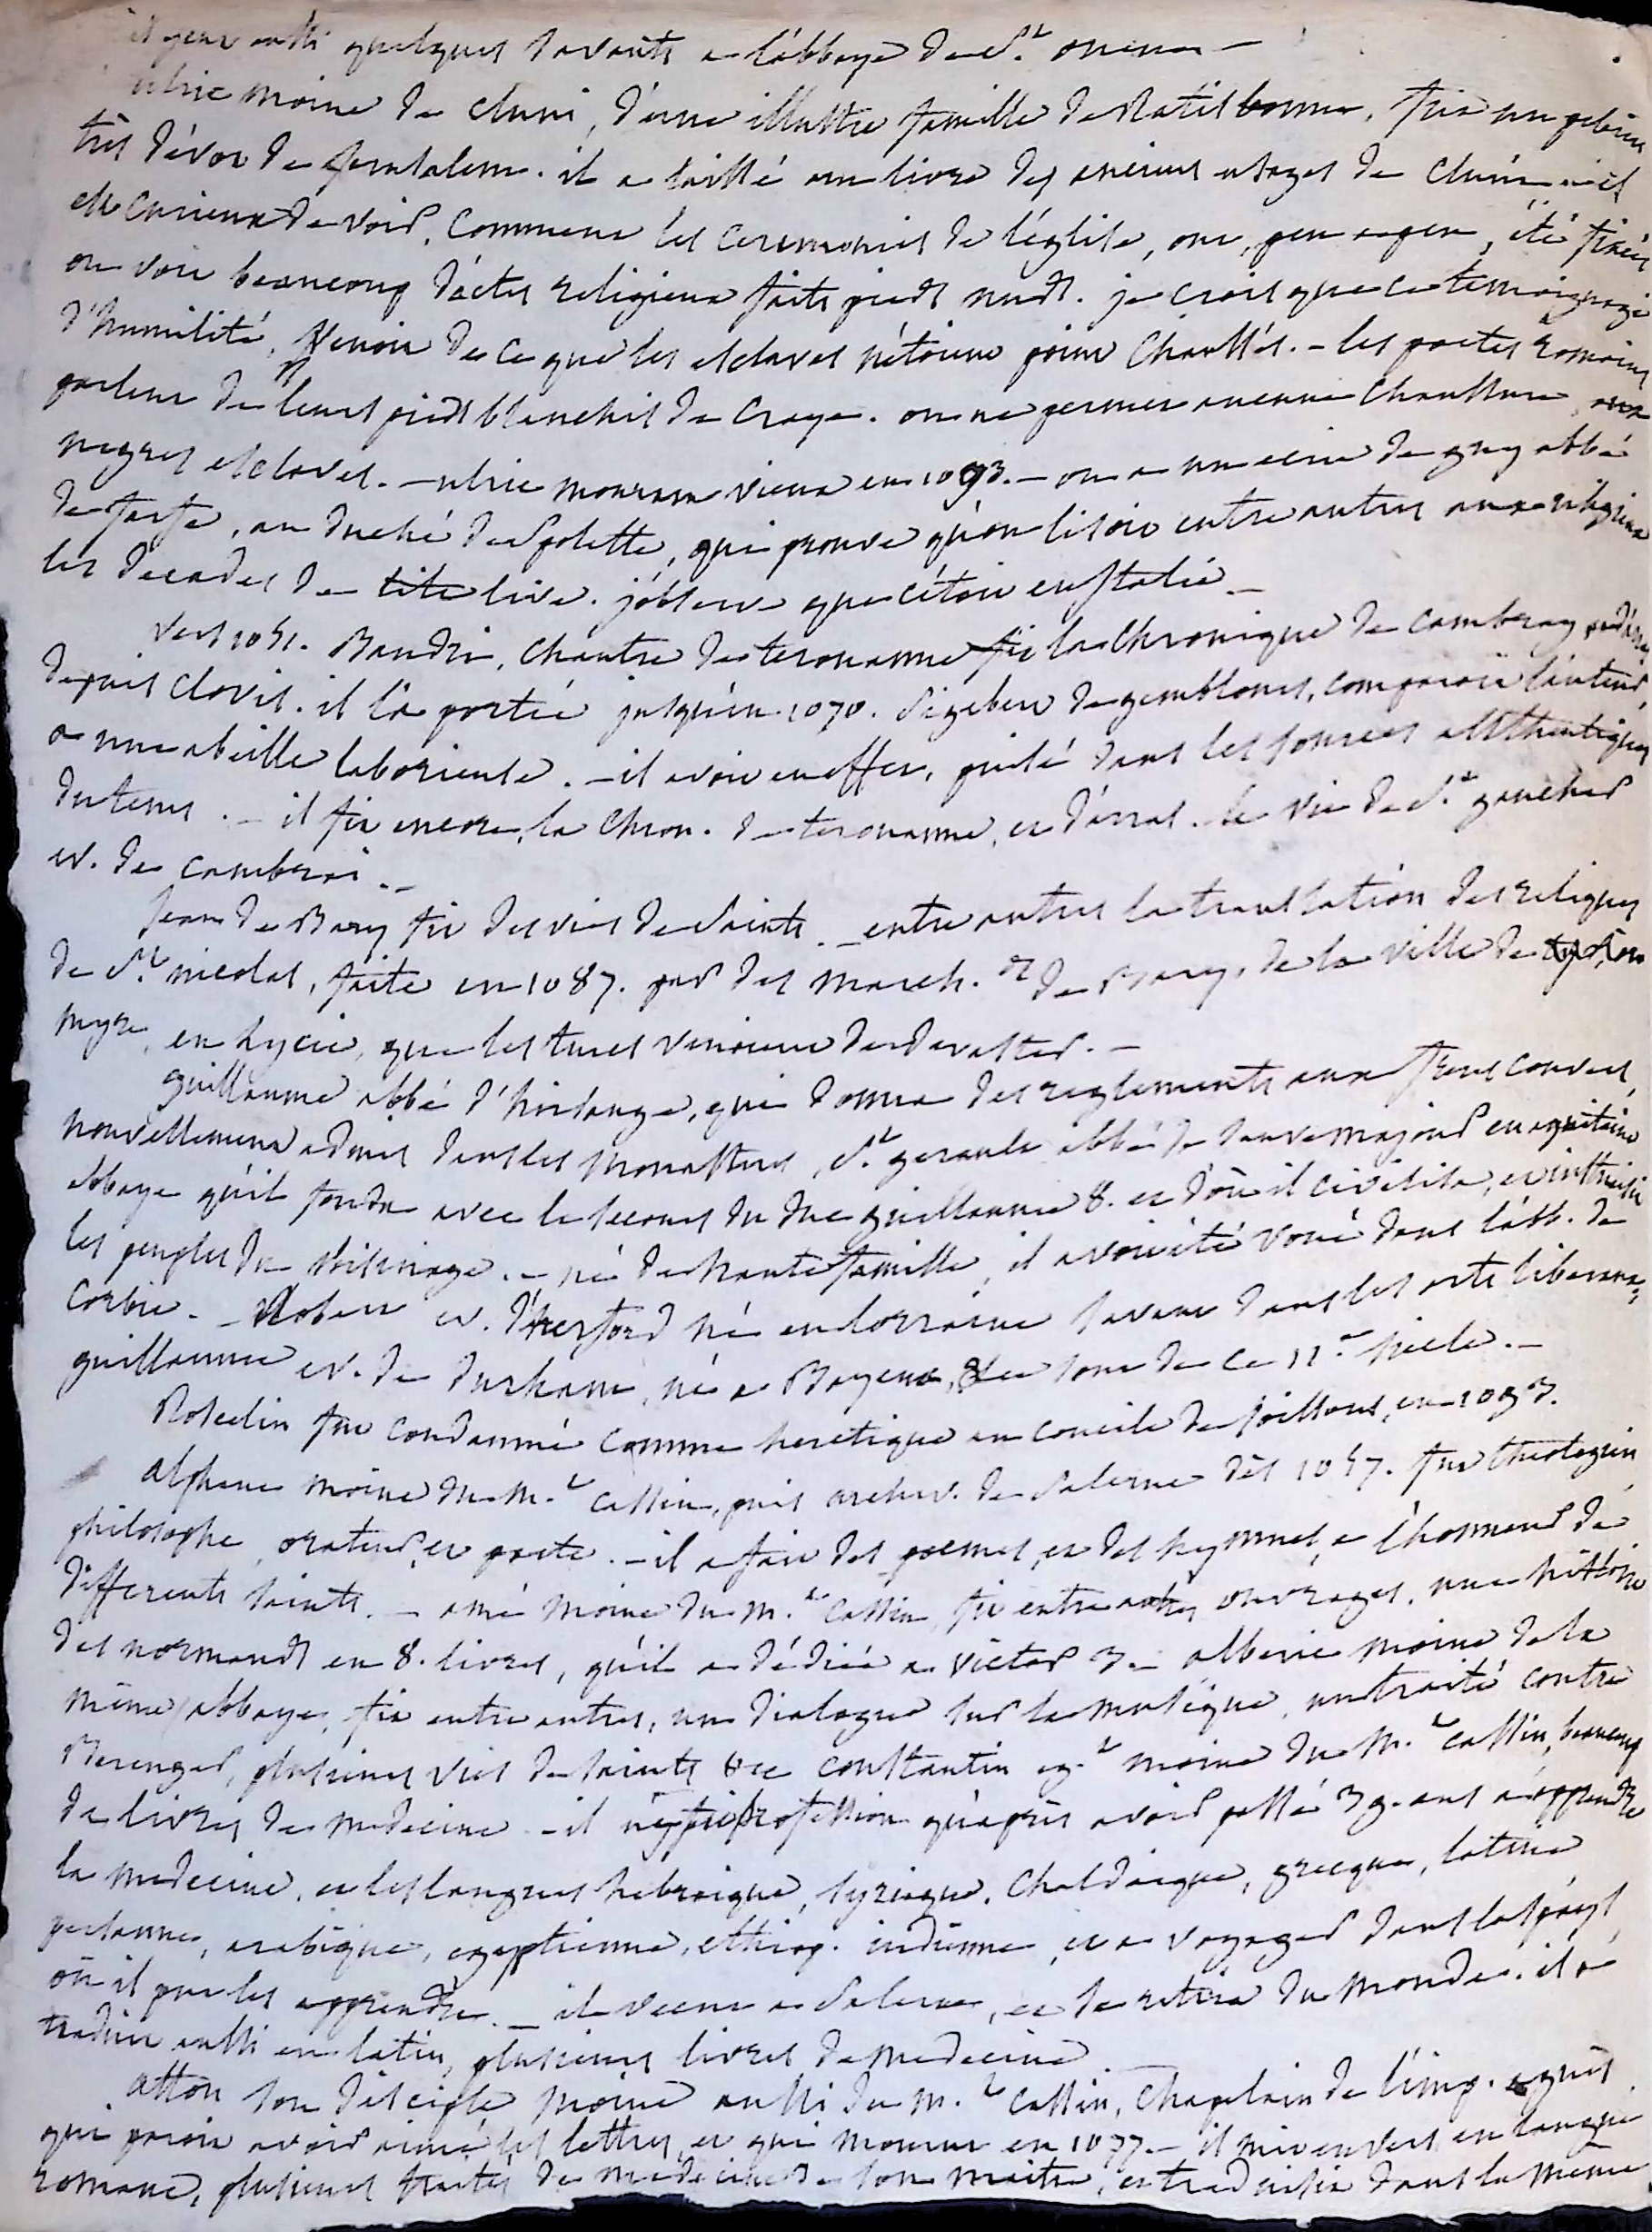 il y eut aussi quelques savants a l'abbaye de St. ouen —
ulric moine de cluni, d'une illustre famille de Ratisbonne, fit un pelerin
très dévot de Jerusalem. il a laissé un livre des anciens usages de Cluni - il
est curieux de voir, comment les ceremonies de l'église, ont, peu a peu, été fixées
on voit beaucoup d'actes religieux faits pieds nuds. je crois que ce temoignage
d'humilité, venoit de ce que les esclaves n'étoient point chaussés. - les poetes romains
parlent de leurs pieds blanchis de craye. on ne permet aucune chaussure aux
negres esclaves. - ulric mourut vieux en 1093. - on a un ecrit de guy abbé
de farfe, au duché de Spolette, qui prouve qu'on lisoit entre autres aux religieux
les decades de tite live. j'observe que c'étoit en Italie —
vers 1051. Baudri, chantre de terouanne fit la chronique de Cambray
depuis Clovis. il l'a portée jusqu'en 1070. Sigebert de gemblours, comparoit l'auteur,
a une abeille laborieuse. - il avoit en effet, puisé dans les sources authentiques
du tems. - il fit encore, la chron. de terouanne, et d'arras. la vie de St. gaucher
ev. de cambrai. -
Jean de Bary fit des vies de saints - entre autres la translation des reliques
de St. nicolas, faite en 1087. par des march. ds de Bary, de la ville de
myre, en Lycie, que les turcs venoient de devaster. -
guillaume abbé d'hirsauge, qui donna des reglements aux freres convers,
nouvellement admis dans les monasteres, St. geraule abbé de sauve majour en aquitaine
abbaye qu'il fonda avec le secours du duc guillaume 8. et d'où il civilisa, et instruisit
les peuples du voisinage. - né de haute famille, il avoit été voué dans l'abb. de
Corbie. - Robert ev. d'herford né en Lorraine savant dans les arts liberaux,
guillaume ev. de durham, né a Bayeux, &c sont de ce 11.e siecle. -
Roscelin fut condamné comme heretique au concile de Soissons, en 1093.
alphane moine du m.t cassin, puis archev. de Salerne dès 1057. fut theologien
philosophe, orateur, et poete. - il a fait des poemes, et des hymnes, a l'honneur de
differents saints. - amé moine du m.t Cassin, fit entre autres ouvrages, une histoire
des normands en 8. livres, qu'il a dédiée a victor 3. - alberic moine de la
même abbaye, fit entre autres, un dialogue sur la musique, un traité contre
Berenger, plusieurs vies de saints &c constantin eg.t moine du m.t cassin, beaucoup
de livres de medecine. - il n'y fit profession qu'après avoir passé 39. ans a apprendre
la medecine, et les langues hebraique, syriaque, Chaldaique, grecque, latine
persanne, arabique, egyptienne, ethiop. indienne, et a voyager dans les pays
où il put les apprendre. - il vecut a Salerne, et se retira du monde. il a
traduit aussi en latin, plusieurs livres de medecine.
atton son disciple moine aussi du m.t Cassin, chapelain de l'imp. agnès
qui paroit avoir aimé les lettres, et qui mourut en 1077. - il mit en vers, en langue
romane, plusieurs traités de medecine de son maitre, et traduisit dans la meme